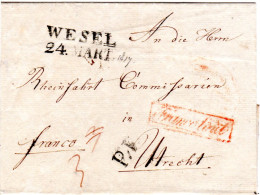 WESEL
24. MART.
An die Herrn
Rheinfahrt Commissarien
in
franco
Utrecht